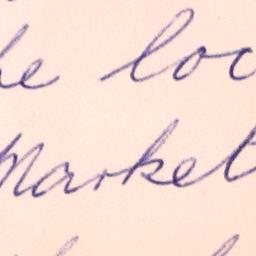 he loc
Market